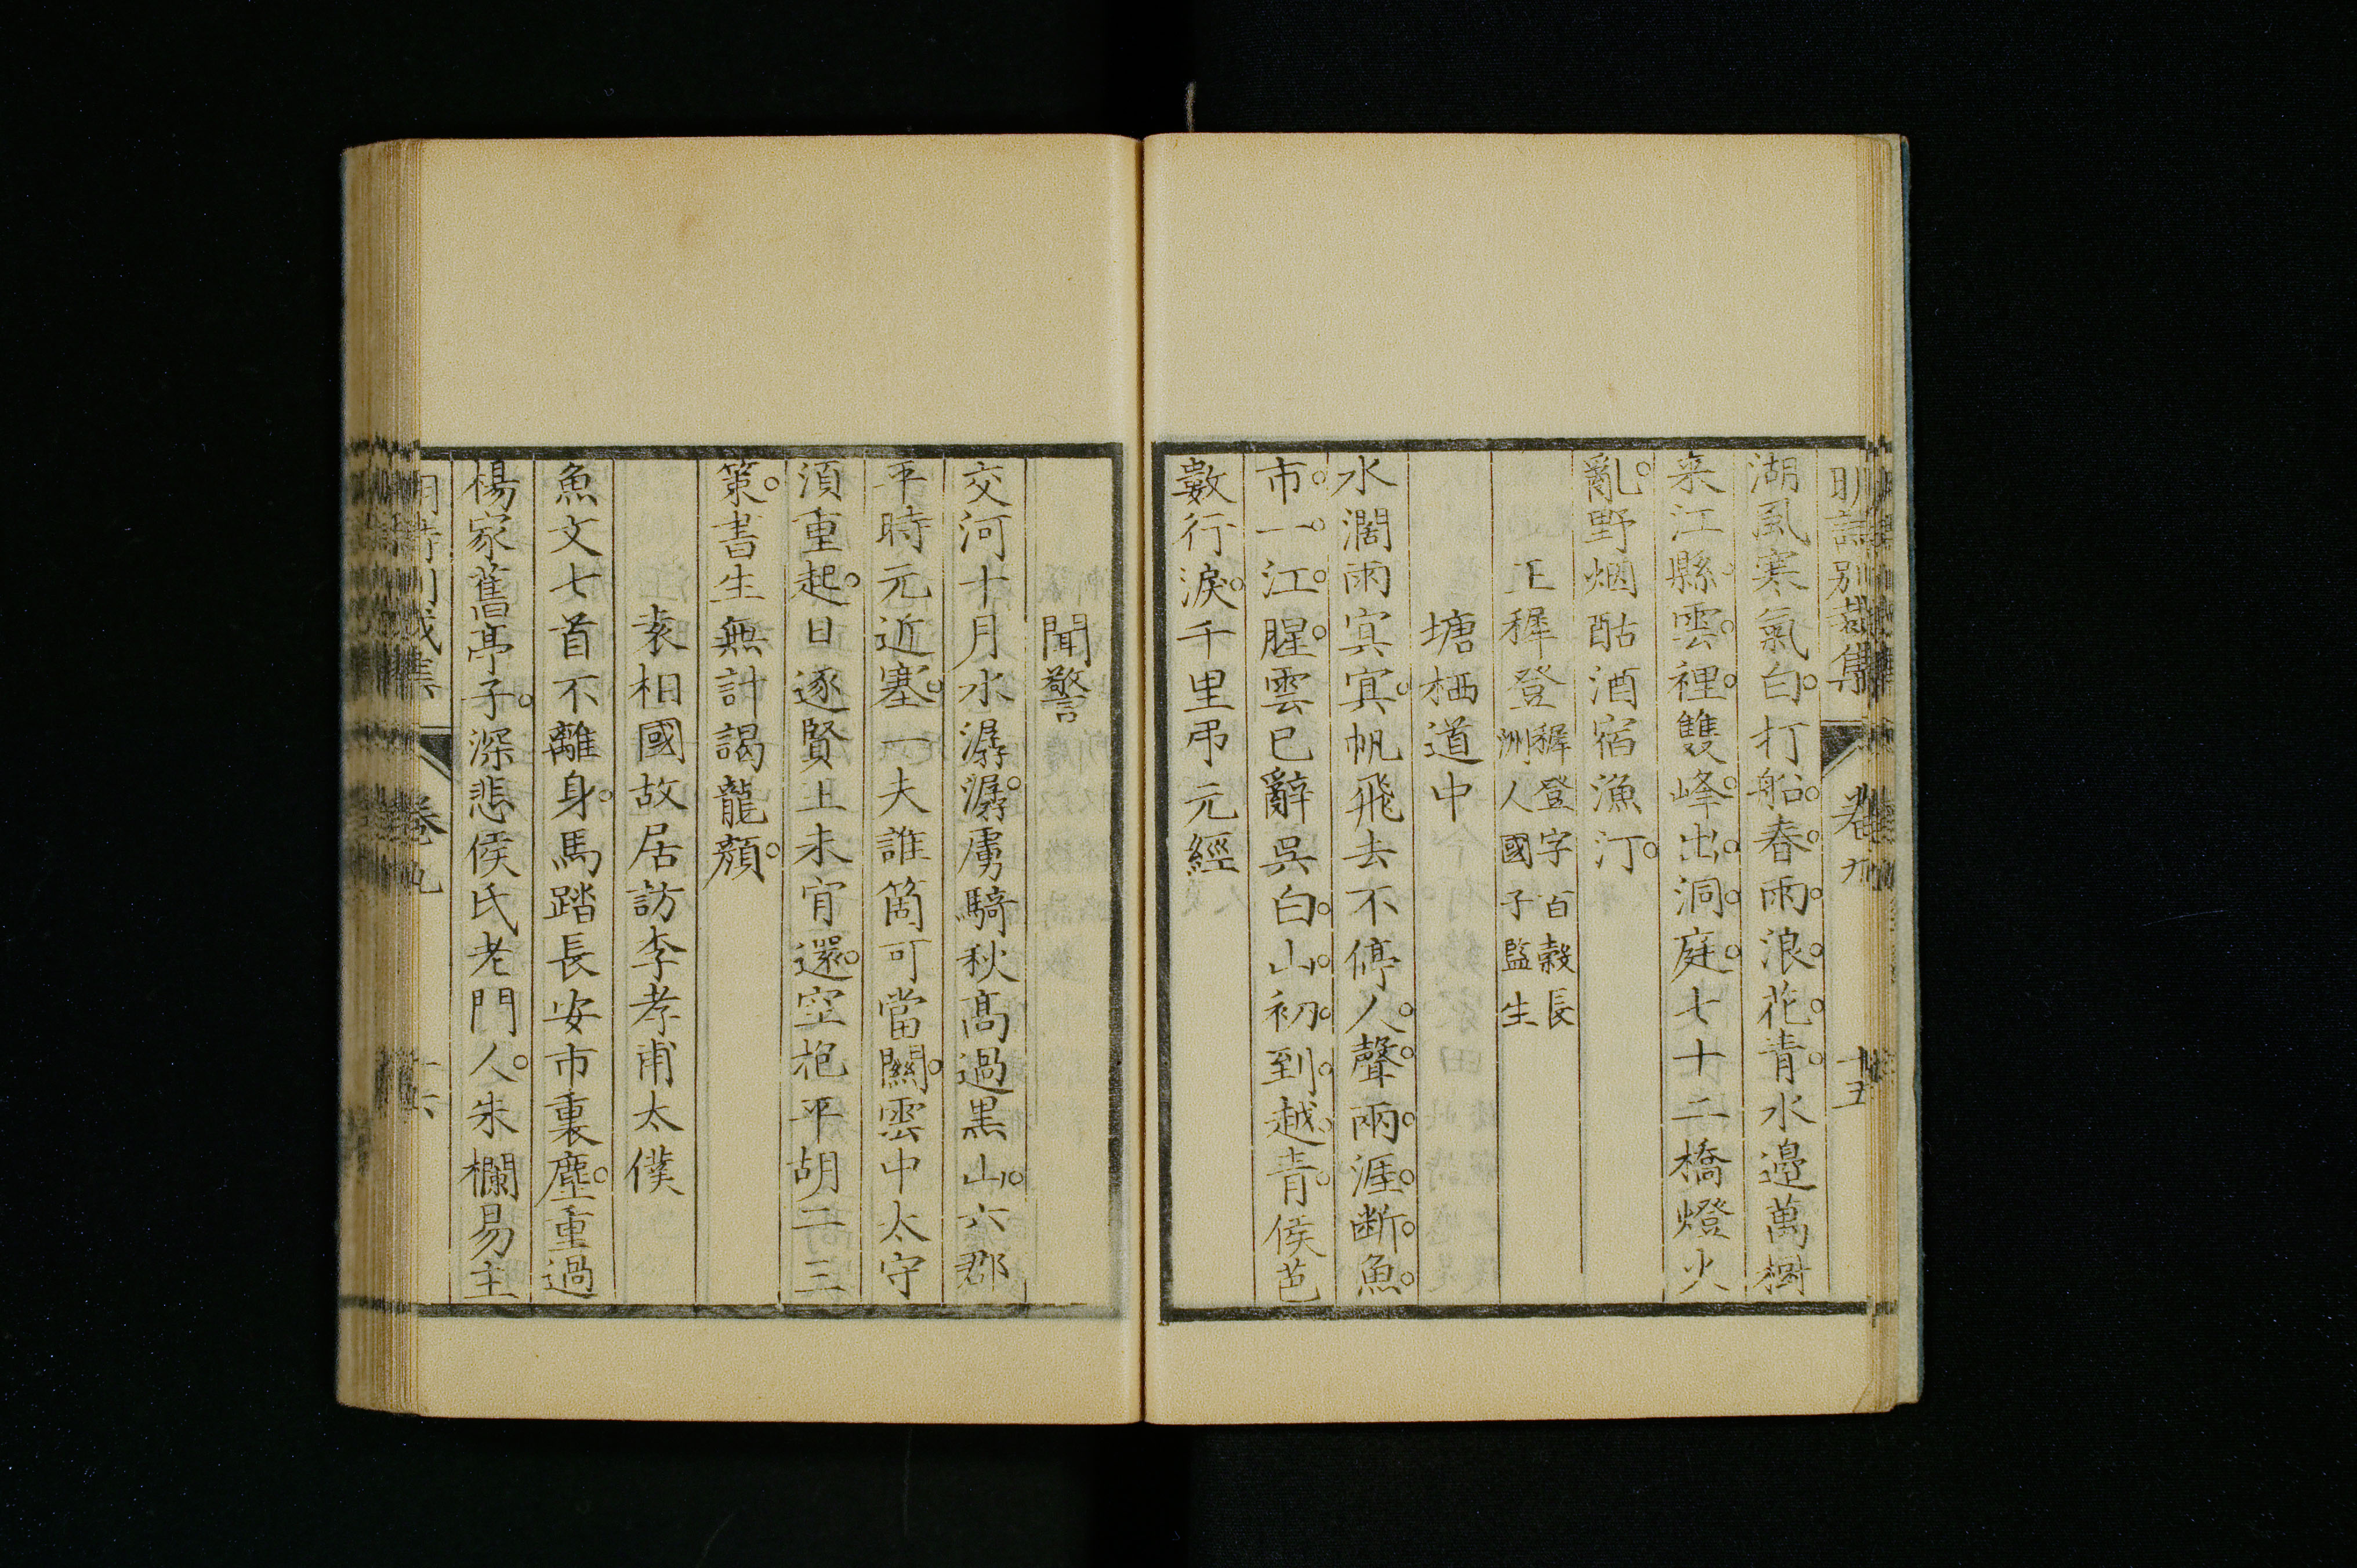 明詩別裁集 卷九 十五
湖風寒氣白打船春雨浪花青水邊萬樹
来江縣雲裡雙峰出洞庭七十二橋燈火
亂野烟酤酒宿漁汀
王穉登穉登字百穀長洲人國子監生
塘栖道中
水濶雨㝠㝠帆飛去不停人聲兩涯断魚
市一江腥雲已辭吳白山初到越青侯芭
數行淚千里弔元經
聞警
交河十月水潺潺虜騎秋高過黒山六郡
平時元近塞一夫誰箇可當關雲中太守
須重起日逐賢王未肯還空抱平胡二三
策書生無計謁龍顔
袁相國故居訪李孝甫太僕
魚文七首不離身馬踏長安市裏塵重過
楊家舊亭子深悲侯氏老門人朱欄易主
明詩別裁集 卷九 十六